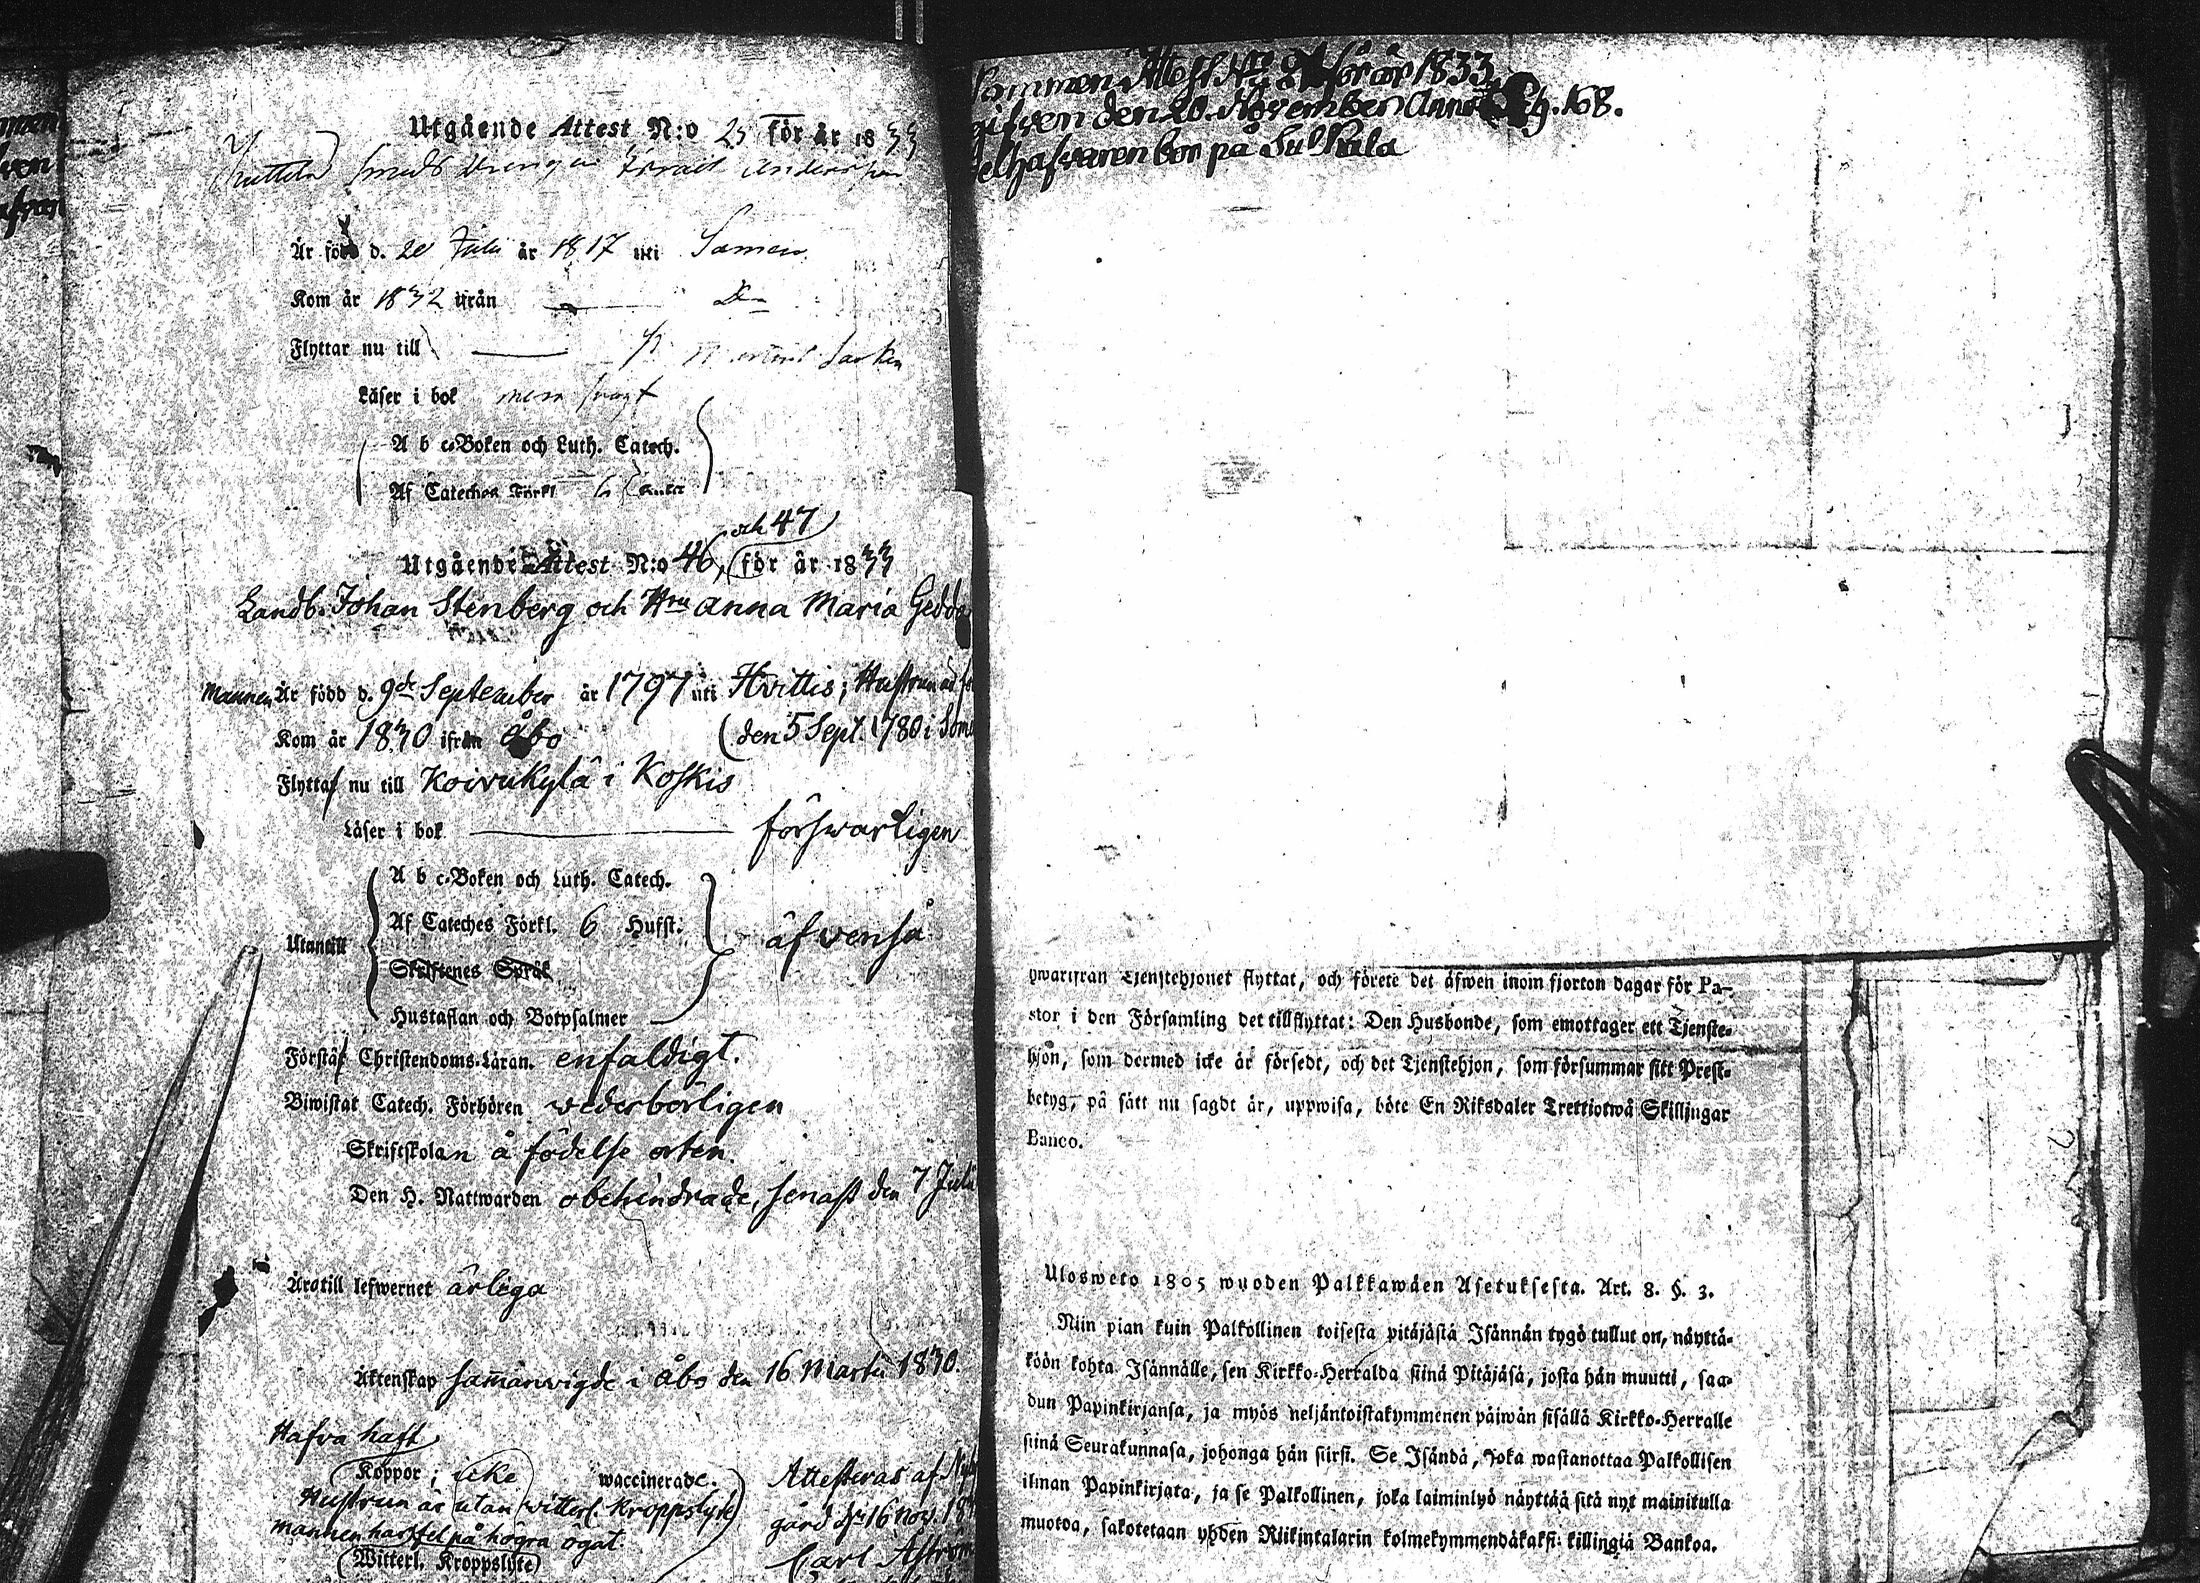 Utgående Attest N:o 25 för år 1833
Smeds drengen Israel Andersson
Är född d. 20 Julii år 1817 uti Somero
Kom år 1832 ifrån D:o
Flyttar nu till
Läser i bok men svagt
A b c-Boken och Luth. Catech.
Af Cateches Förkl. 6
och 47
Utgående Attest N:o 46, för år 1833
Landb. Johan Stenberg och Hru Anna Maria Gedda
Mannen Är född d. 9de September år 1797 uti Hvittis; Hustrun är
Kom år 1830 ifrån Åbo (den 5 Sept. 1780 i Some
Flytta nu till Koivukylä i Koskis
Läser i bok försvarligen
A b c-Boken och Luth. Catech.
Af Cateches Förkl. 6 Hufst.
Utantill äfvenså
Skriftenes Språk
Hustaflan och Botpsalmer
Förstå Christendoms-Läran. enfaldigt.
Biwistat Catech. Förhören vederbörligen
Skriftskolan å födelse orten.
Den H. Nattwarden obehindrade, senast den 7 Julii
Äro till lefwernet ärliga
Äktenskap sammanvigde i Åbo den 16 Martii 1830.
Hafva haft
Koppor; icke waccinerade. Attesteras af Nyby
Hustrun är utan vitterl. Kroppslyte gård d. 16 nov. 18
mannen har fel på högra ögat.
(Witterl. Kroppslyte) Carl Åström
kommen Attest N:o för år 1833
gifven den 20 November Anno Pg. 168.
elhafvaren bor på Sulkala
hwarifrån Tjenstehjonet flyttat, och förete det äfwen inom fjorton dagar för Pa-
stor i den Församling det tillflyttat: Den Husbonde, som emottager ett Tjenste-
hjon, som dermed icke är försedt, och det Tjenstehjon, som försummar sitt Prest-
betyg, på sätt nu sagdt är, uppwisa, böte En Riksdaler Trettiotwå Skillingar
Banco.
Ulosweto 1805 wuoden Palkkawäen Asetuksesta. Art. 8. §. 3.
Niin pian kuin Palkollinen toisesta pitäjästä Isännän tygö tullut on, näyttä-
köön kohta Isännälle, sen Kirkko-Herralda siinä Pitäjäsä, josta hän muutti, saa-
dun Papinkirjansa, ja myös neljäntoistakymmenen päiwän sisällä Kirkko-Herralle
siinä Seurakunnasa, johonga hän siirsi. Se Isändä, joka wastanottaa Palkollisen
ilman Papinkirjata, ja se Palkollinen, joka laiminlyö näyttää sitä nyt mainitulla
muotoa, sakotetaan yhden Riikintalarin kolmekymmendäkaksi killingiä Bankoa.